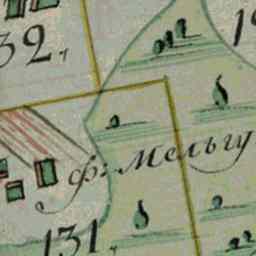 32,
19
ф: Мельгу
131,